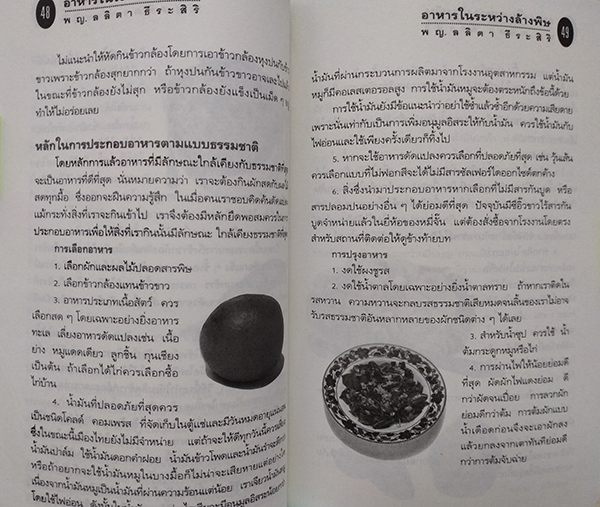 48
อาหารใน
พญ.ลลิตา ธีระสิริ
ไม่แนะนำให้หัดกินข้าวกล้องโดยการเอาข้าวกล้องหุงปนกับข้าว
ขาวเพราะข้าวกล้องสุกยากกว่า ถ้าหุงปนกันข้าวขาวอาจจะ
ในขณะที่ข้าวกล้องยังไม่สุก หรือข้าวกล้องยังแข็งเป็นเม็ด ๆ
ทำให้ไม่อร่อยเลย
หลักในการประกอบอาหารตามแบบธรรมชาติ
โดยหลักการแล้วอาหารที่มีลักษณะใกล้เคียงกับธรรมชาติ
จะเป็นอาหารที่ดีที่สุด นั่นหมายความว่า เราจะต้องกินผักสดกับผลไม้
สดทุกมื้อ ซึ่งออกจะฝืนความรู้สึก ในเมื่อคนเราชอบคิดค้นดัดแปลง
แม้กระทั่งสิ่งที่เราจะกินเข้าไป เราจึงต้องมีหลักยึดพอสมควรในการ
ประกอบอาหารเพื่อให้สิ่งที่เรากินนั้นมีลักษณะ ใกล้เคียงธรรมชาติ
การเลือกอาหาร
1. เลือกผักและผลไม้ปลอดสารพิษ
2. เลือกข้าวกล้องแทนข้าวขาว
3. อาหารประเภทเนื้อสัตว์ ควร
เลือกสด ๆ โดยเฉพาะอย่างยิ่งอาหาร
ทะเล เลี่ยงอาหารดัดแปลงเช่น เนื้อ
ย่าง หมูแดดเดียว ลูกชิ้น กุนเชียง
เป็นต้น ถ้าเลือกได้ไก่ควรเลือกซื้อ
ไก่บ้าน
4. น้ำมันที่ปลอดภัยที่สุดควร
เป็นชนิดโคลด์ คอมเพรส ที่จัดเก็บในตู้แช่และมีวันหมดอายุ
ซึ่งในขณะนี้เมืองไทยยังไม่มีจำหน่าย แต่ถ้าจะให้ดีทุกวันนี้ควร
น้ำมันปาล์ม ใช้น้ำมันดอกคำฝอย น้ำมันข้าวโพดและน้ำมัน
หรือถ้าอยากจะใช้น้ำมันหมูในบางมื้อก็ไม่น่าจะเสียหาย
เนื่องจากน้ำมันหมูเป็นน้ำมันที่ผ่านความร้อนแต่น้อย เราเจียวน้ำมัน
โดยใช้ไฟอ่อน ดังนั้น
อาหารในระหว่างล้างพิษ
พญ.ลลิตา ธีระสิริ
49
น้ำมันที่ผ่านกระบวนการผลิตมาจากโรงงานอุตสาหกรรม แต่น้ำมัน
หมูก็มีคอเลสเตอรอลสูง การใช้น้ำมันหมูจะต้องตระหนักถึงข้อนี้ด้วย
การใช้น้ำมันยังมีข้อแนะนำว่าอย่าใช้ซ้ำแล้วซ้ำอีกด้วยความเสียดาย
เพราะนั่นเท่ากับเป็นการเพิ่มอนุมูลอิสระให้กับน้ำมัน ควรใช้น้ำมันกับ
ไฟอ่อนและใช้เพียงครั้งเดียวก็ทิ้งไป
5. หากจะใช้อาหารดัดแปลงควรเลือกที่ปลอดภัยที่สุด เช่น วุ้นเส้น
ควรเลือกแบบที่ไม่ฟอกสีจะได้ไม่มีสารซัลเฟอร์ไดออกไซด์ตกค้าง
6. สิ่งซึ่งนำมาประกอบอาหารหากเลือกที่ไม่มีสารกันบูด หรือ
สารปลอมปนอย่างอื่น ๆ ได้ย่อมดีที่สุด ปัจจุบันมีซีอิ๊วขาวไร้สารกัน
บูดจำหน่ายแล้วในยี่ห้อของหมี่จั๊น แต่ต้องสั่งซื้อจากโรงงานโดยตรง
สำหรับสถานที่ติดต่อให้ดูข้างท้ายบท
การปรุงอาหาร
1. งดใช้ผงชูรส
2. งดใช้น้ำตาลโดยเฉพาะอย่างยิ่งน้ำตาลทราย ถ้าหากเราติดใน
รสหวาน ความหวานจะกลบรสธรรมชาติเสียหมดจนลิ้นของเราไม่อาจ
รับรสธรรมชาติอันหลากหลายของผักชนิดต่าง ๆ ได้เลย
3. สำหรับน้ำซุป ควรใช้ น้ำ
ต้มกระดูกหมูหรือไก่
4. การผ่านไฟให้น้อยย่อมดี
ที่สุด ผัดผักไฟแดงย่อม ดี
กว่าผัดจนเปื่อย การลวกผัก
ย่อมดีกว่าต้ม การต้มผักแบบ
น้ำเดือดก่อนจึงจะเอาผักลง
แล้วยกลงจากเตาทันทีย่อมดี
กว่าการต้มจับฉ่าย